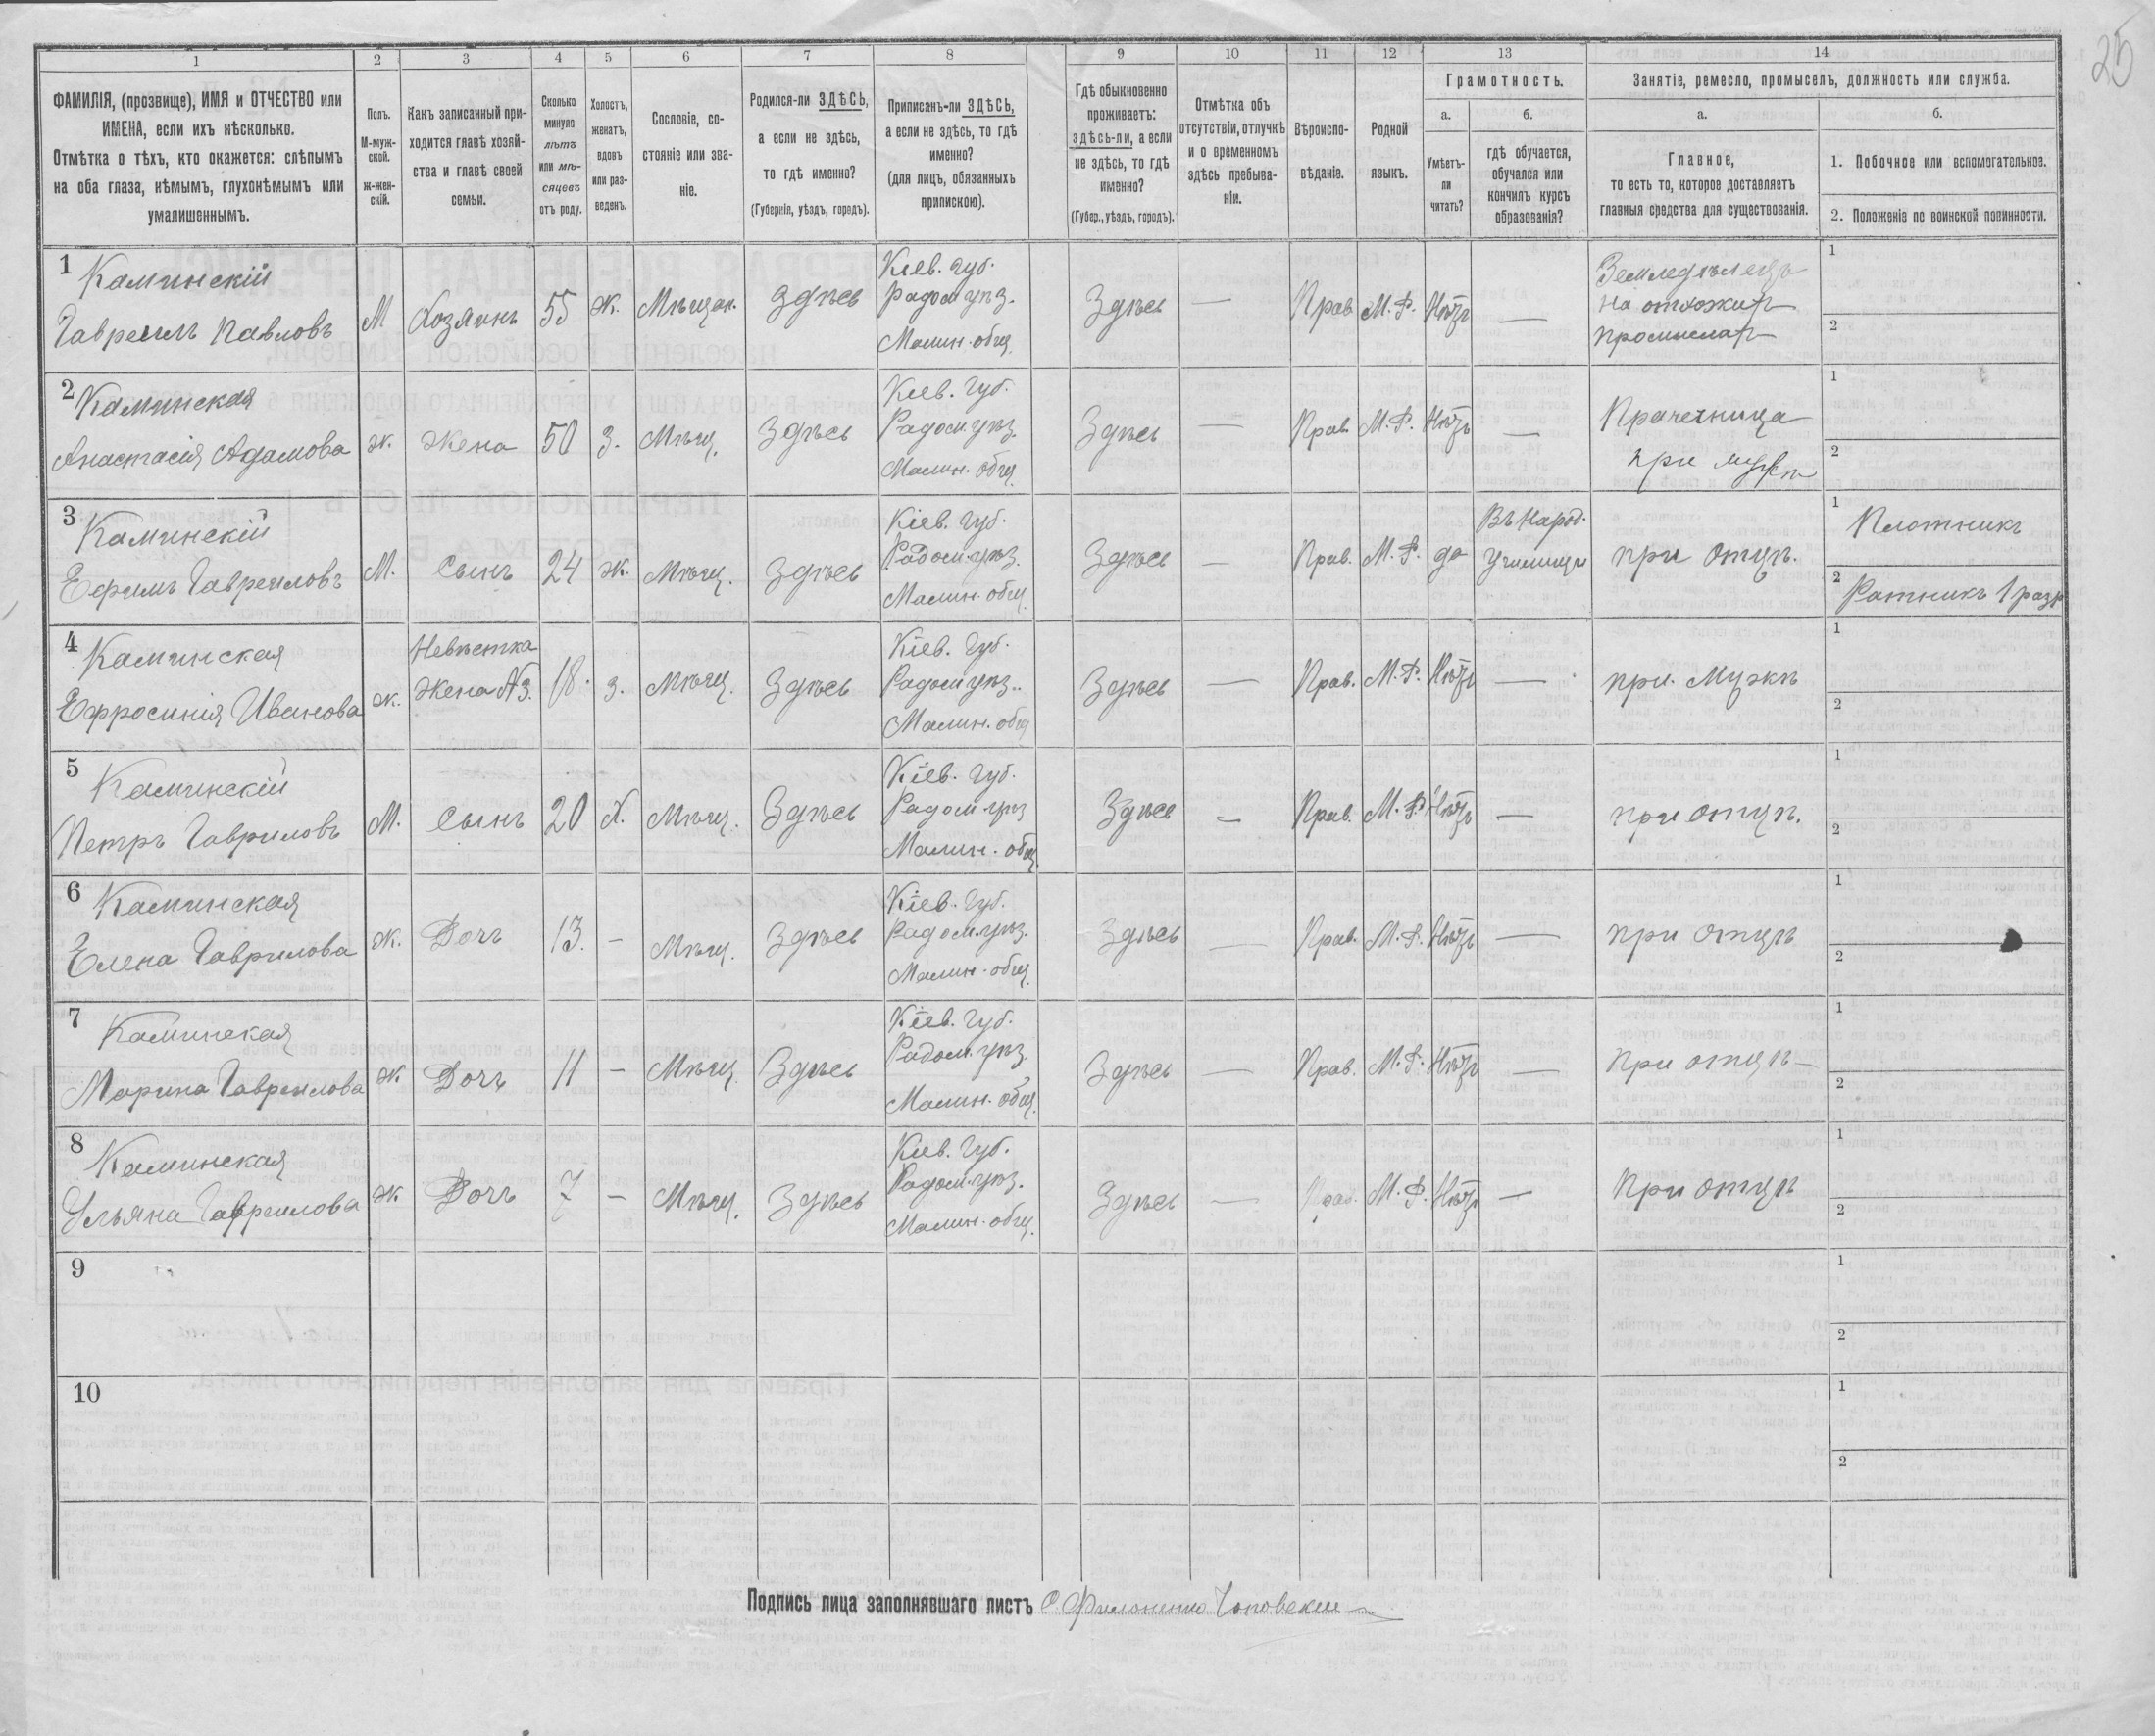 25
1 2 3 4 5 6 7 8 9 10 11 12 13 14
ФАМИЛІЯ, (прозвище), ИМЯ и ОТЧЕСТВО или
ИМЕНА, если ихъ нѣсколько.
Отмѣтка о тѣхъ, кто окажется: слѣпымъ
на оба глаза, нѣмымъ, глухонѣмымъ или
умалишеннымъ.
Полъ.
М-муж-
ской.
ж-жен-
скій.
Какъ записанный при-
ходится главѣ хозяй-
ства и главѣ своей
семьи.
Сколько
минуло
лѣтъ
или мѣ-
сяцевъ
отъ роду.
Холостъ,
женатъ,
вдовъ
или раз-
веденъ.
Сословіе, со-
стояніе или зва-
ніе.
Родился-ли ЗДѢСЬ,
а если не здѣсь,
то гдѣ именно?
(Губернія, уѣздъ, городъ).
Приписанъ-ли ЗДѢСЬ,
а если не здѣсь, то гдѣ
именно?
(для лицъ, обязанныхъ
припискою).
Гдѣ обыкновенно
проживаетъ:
здѣсь-ли, а если
не здѣсь, то гдѣ
именно?
(Губер., уѣздъ, городъ).
Отмѣтка объ
отсутствіи, отлучкѣ
и о временномъ
здѣсь пребыва-
ніи.
Вѣроиспо-
вѣданіе.
Родной
языкъ.
Грамотность.
а.
Умѣетъ-
ли
читать?
б.
гдѣ обучается,
обучался или
кончилъ курсъ
образованія?
Занятіе, ремесло, промыселъ, должность или служба.
а.
Главное,
то есть то, которое доставляетъ
главныя средства для существованія.
б.
1. Побочное или вспомогательное.
2. Положеніе по воинской повинности.
1 Каминскій
Гавреилъ Павловъ
М Хозяинъ 55 ж. Мѣщан. Здѣсь
Кіев. губ.
Радом. уѣз.
Малин. общ.
Здѣсь — Прав. М. Р. Нѣтъ —
Земледѣлецъ
на отхожих
промыслах
1
2
2 Каминская
Анастасія Адамова
ж. Жена 50 з. Мѣщ. Здѣсь
Кіев. Губ.
Радом. уѣз.
Малин. общ.
Здѣсь — Прав. М. Р. Нѣтъ —
при мужѣ
1
2
3 Каминскій
Ефимъ Гавреиловъ
М. Сынъ 24 ж. Мѣщ. Здѣсь
Кіев. Губ.
Радом. уѣз.
Малин. общ.
Здѣсь — Прав. М. Р. да
Въ Народ.
Училищи
при отцѣ.
1 Плотникъ
2 Ратникъ 1 разр
4 Каминская
Ефросинія Иванова
ж.
Невѣстка
Жена №3.
18. з. Мѣщ. Здѣсь
Кіев. Губ.
Радом. уѣз.
Малин. общ
Здѣсь — Прав. М. Р. Нѣтъ —
при. Мужѣ
1
2
5 Каминскій
Петръ Гавриловъ
М. Сынъ 20 Х. Мѣщ. Здѣсь
Кіев. Губ.
Радом. уѣз
Малин. общ.
Здѣсь — Прав. М. Р. Нѣтъ —
при отцѣ.
1
2
6 Каминская
Елена Гаврилова
ж. Дочь 13. — Мѣщ. Здѣсь
Кіев. Губ.
Радом. уѣз.
Малин. общ.
Здѣсь — Прав. М. Р. Нѣтъ —
при отцѣ
1
2
7 Каминская
Марина Гавреилова
ж. Дочь 11 — Мѣщ. Здѣсь
Кіев. Губ.
Радом. уѣз.
Малин. общ.
Здѣсь — Прав. М. Р. Нѣтъ —
при отцѣ —
1
2
8 Каминская
Ульяна Гавреилова
ж. Дочь 7 — Мѣщ. Здѣсь
Кіев. Губ.
Радом. уѣз.
Малин. общ.
Здѣсь — Прав. М. Р. Нѣтъ —
при отцѣ
1
2
9
1
2
10
1
2
Подпись лица заполнявшаго листъ